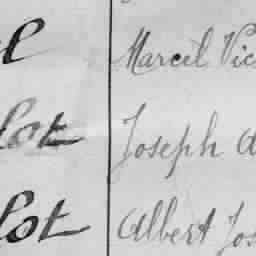 Marcel Vic
lot Joseph A
lot Albert Jos